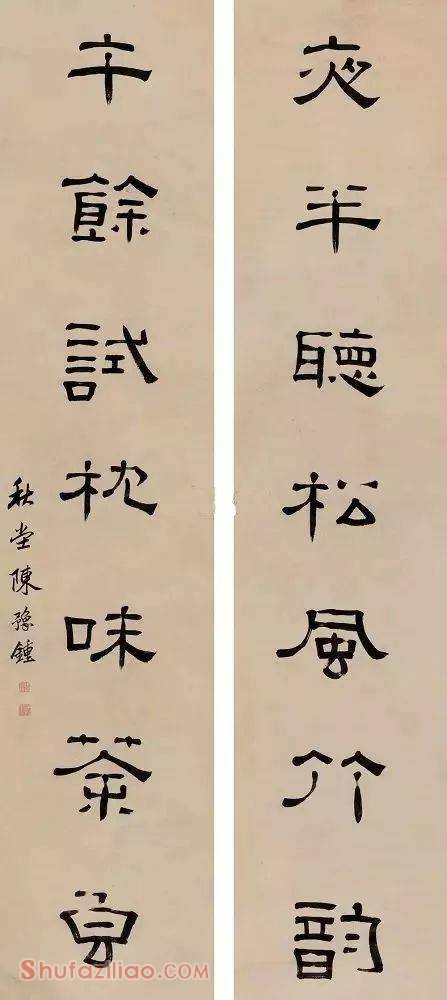 夜半聽松風竹韵
午餘試枕味茶
秋堂陳豫鍾
Shufaziliao.com